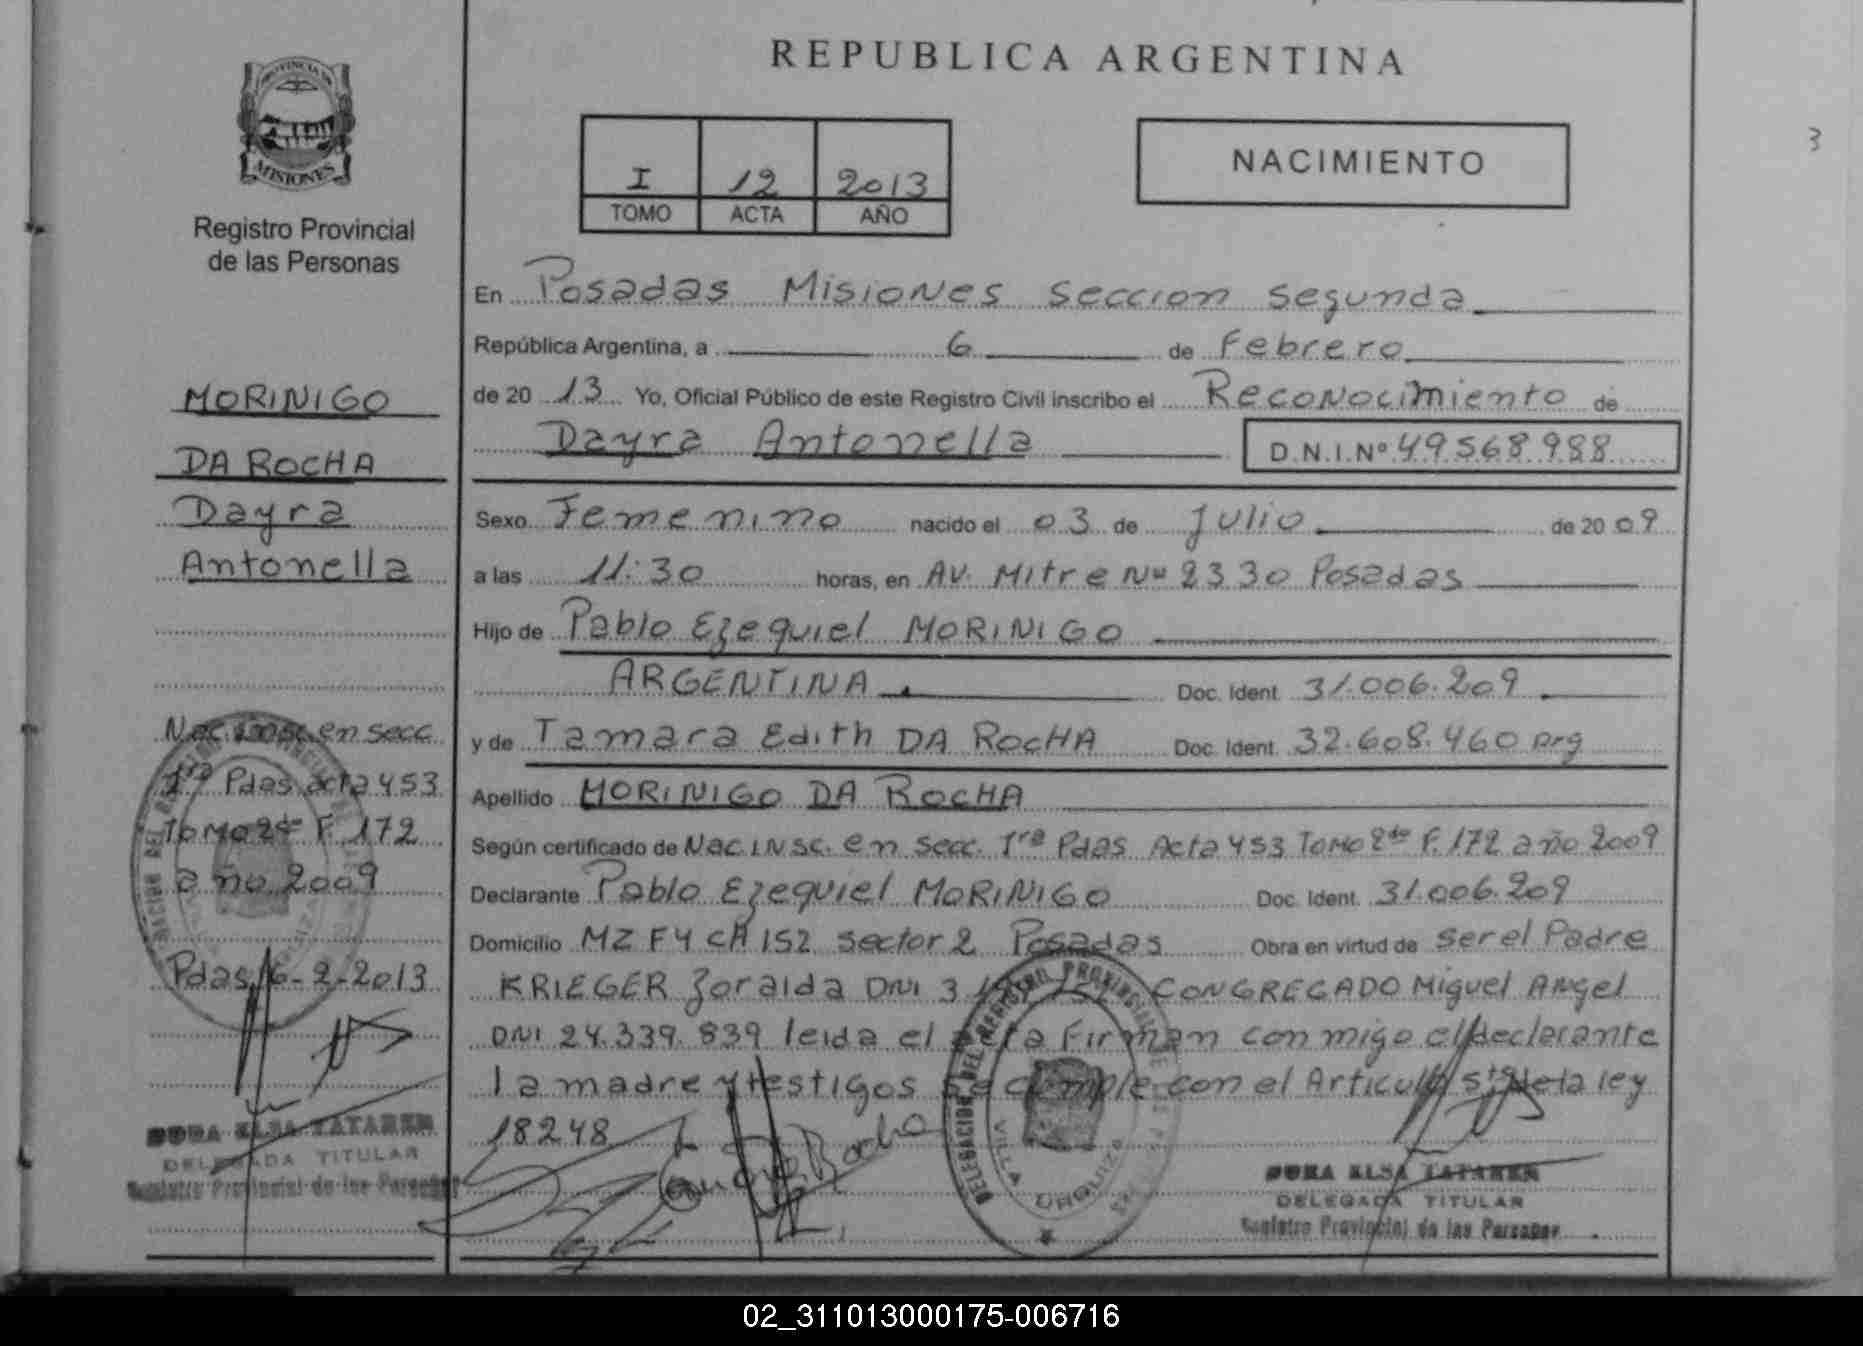 REPUBLICA ARGENTINA
PROVINCIA DE
MISIONES
Registro Provincial
de las Personas
I 12 2013
TOMO ACTA AÑO
NACIMIENTO
3
MORINIGO
DA ROCHA
Dayra
Antonella
Nac. insc. en secc
1ra Pdas acta 453
Tomo 2do F. 172
año 2009
Pdas 6-2-2013
DORA ELSA TATAREN
DELEGADA TITULAR
Registro Provincial de las Personas
En Posadas Misiones seccion segunda
República Argentina, a 6 de Febrero
de 2013 Yo, Oficial Público de este Registro Civil inscribo el Reconocimiento de
Dayra Antonella D.N.I.Nº 49568988
Sexo Femenino nacido el 03 de Julio de 2009
a las 11:30 horas, en AV. Mitre Nº 2330 Posadas
Hijo de Pablo Ezequiel MORINIGO
ARGENTINA Doc. Ident. 31.006.209
y de Tamara Edith DA ROCHA Doc. Ident. 32.608.460 Arg
Apellido MORINIGO DA ROCHA
Según certificado de Nac. INSC. en secc. 1ra Pdas Acta 453 Tomo 2do F. 172 año 2009
Declarante Pablo Ezequiel MORINIGO Doc. Ident. 31.006.209
Domicilio MZ F4 CH 152 sector 2 Posadas Obra en virtud de ser el Padre
KRIEGER Zoraida DNI CONGREGADO Miguel Angel
DNI 24.339.839 leida el acta Firman con migo el declarante
la madre y testigos se cumple con el Articulo 5to de la ley
18248
DELEGACION DEL REGISTRO PROVINCIAL DE LAS PERSONAS
VILLA URQUIZA
DORA ELSA TATAREN
DELEGADA TITULAR
Registro Provincial de las Personas
02_311013000175-006716